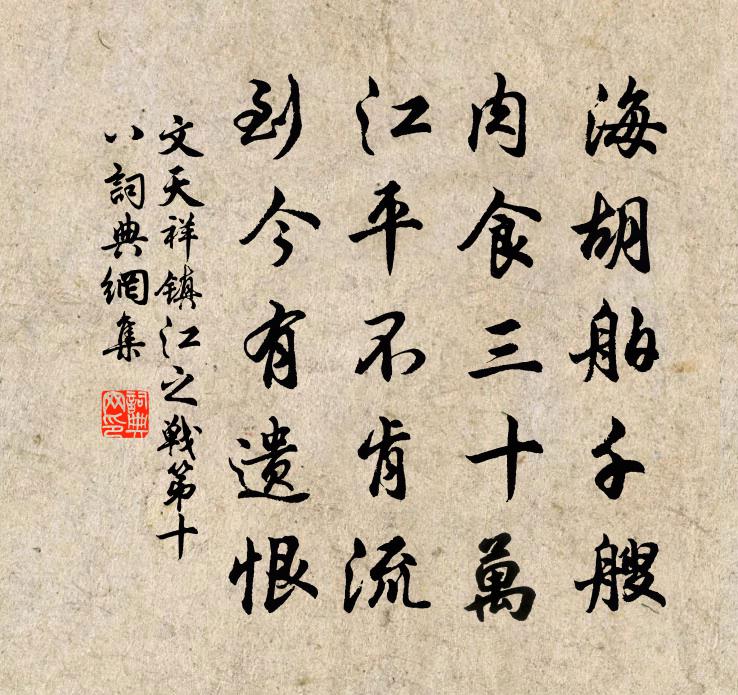 海胡舶千艘
肉食三十萬
江平不肯流
到今有遗恨
文天祥鎮江之戰第十
八詞典網集
詞典
网印